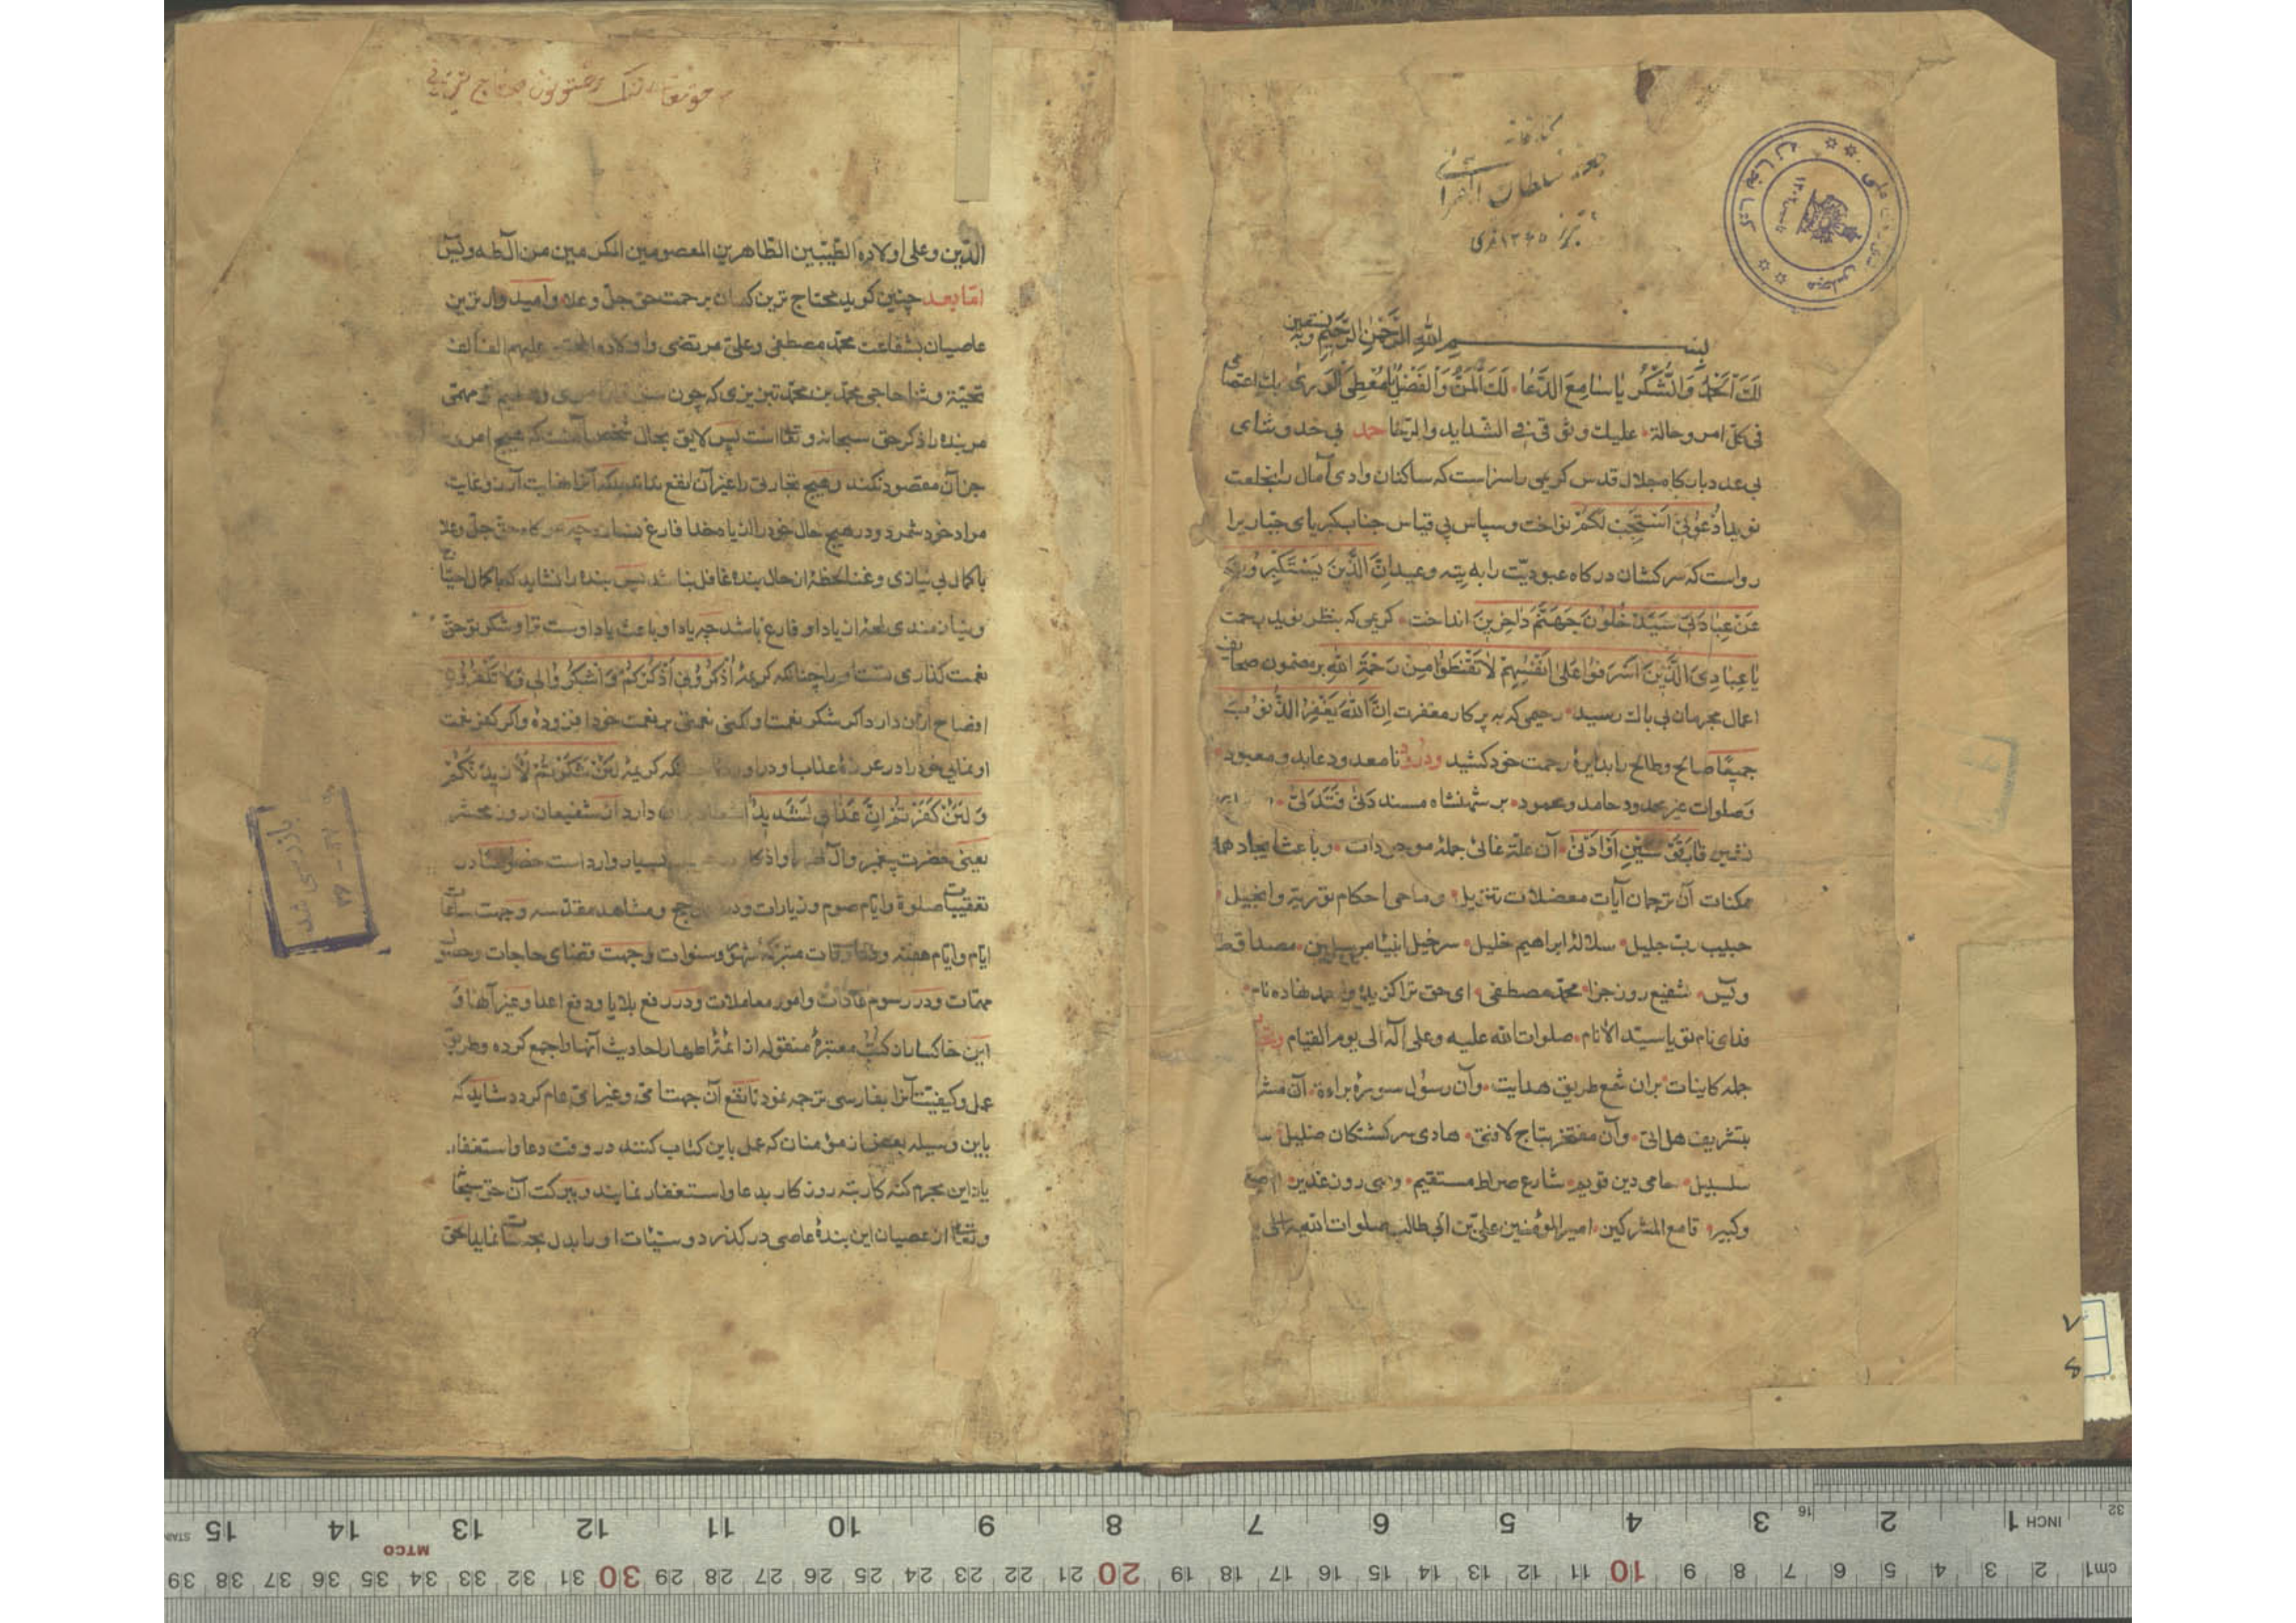 کتابخانه
جعفر سلطان القرائی
تبریز ۱۳۴۵ قمری
بسم الله الرحمن الرحیم وبه نستعین
لَكَ الْحَمْدُ وَالشُّكْرُ یَا سَامِعَ الدُّعَا لَكَ الْمَنُّ وَالْفَضْلُ یَا مُعْطِیَ الْوَرَیٰ بك اعتصامی
فی کلّ امر وحالة علیك وثوقی فی الشداید والرخا حمد بی حد وثنای
بی عد دبارکاه جلال قدس کریمی راسزاست که ساکنان وادی آمال را بخلعت
نوید اُدْعُونِی اَسْتَجِبْ لَکُمْ نواخت وسپاس بی قیاس جناب کبریای جباریرا
رواست که سرکشان درکاه عبودیّت را به وعید اِنَّ الَّذِینَ یَسْتَکْبِرُونَ
عَنْ عِبَادَتِی سَیَدْخُلُونَ جَهَنَّمَ دَاخِرِینَ انداخت کریمی که بنظر نوید رحمت
یَا عِبَادِیَ الَّذِینَ اَسْرَفُوا عَلَی اَنْفُسِهِمْ لَا تَقْنَطُوا مِنْ رَحْمَةِ اللهِ بر مضمون صحایف
اعمال مجرمان بی باك رسید رحیمی که به پرکار مغفرت اِنَّ اللهَ یَغْفِرُ الذُّنُوبَ
جَمِیعًا صالح وطالح را بدایرهٔ رحمت خود کشید ودرود نامعدود عابد ومعبود
وصلوات غیر محدود حامد ومحمود بر شهنشاه مسند دَنٰی فَتَدَلّٰی
قَابَ قَوْسَیْنِ اَوْ اَدْنٰی آن علة غائی جملهٔ موجودات وباعث ایجاد همه
ممکنات آن ترجمان آیات معضلات تنزیل وماحی احکام توریة وانجیل
حبیب ربّ جلیل سلالهٔ ابراهیم خلیل سرخیل انبیا مرسلین مصداق طه
ویس شفیع روز جزا محمّد مصطفی ای حق ترا کزیده و محمد نهاده نام
فدای نام تو یا سیّد الانام صلوات الله علیه وعلی آله الی یوم القیام
جمله کاینات بران شمع طریق هدایت وآن رسول سورهٔ براءة آن مشرّف
بتشریف هل اتی وآن مفتخر بتاج لافتی هادی سرکشتکان
سلسبیل حامی دین قویم شارع صراط مستقیم وصی روز غدیر
وکبیر قامع المشرکین امیر المؤمنین علیّ بن ابی طالب صلوات الله علیه
الدّین وعلی اولاده الطّیّبین الطّاهرین المعصومین المکرمین من آل طه ویس
امّا بعد چنین کوید محتاج ترین کسان برحمت حق جلّ وعلا وامیدوارترین
عاصیان بشفاعت محمّد مصطفی وعلیّ مرتضی واولاده علیهم الف الف
تحیّة وثنا حاجی محمّد بن محمّد تبریزی که چون
مر بنده را ذکر حق سبحانه وتعالی است پس لایق بحال شخص آنست که هیچ امری
جز آن مقصود نکند وهیچ تجارتی را غیر آن نفع نداند بلکه آنرا نهایت آرزو وغایت
مراد خود شمرد ودر هیچ حال خود را از یاد خدا فارغ نسازد چه هر کاه حق جلّ وعلا
با کمال بی نیازی وغنا لحظهٔ از حال بنده غافل نباشد پس بنده را نشاید که با کمال احتیاج
ونیازمندی لحظهٔ از یاد او فارغ باشد چه یاد او باعث یاد اوست ترا وشکر تو حقّ
نعمت کذاری تست او را چنانکه کریمهٔ اُذْکُرُونِی اَذْکُرْکُمْ وَاشْکُرُوا لِی وَلَا تَکْفُرُونِ
افصاح ازان دارد اکر شکر نعمت او کنی نعمتی بر نعمت خود افزوده واکر کفر نعمت
او نمایی خود را در عرضهٔ عذاب او دراورده چنانکه کریمهٔ لَئِنْ شَکَرْتُمْ لَاَزِیدَنَّکُمْ
وَلَئِنْ کَفَرْتُمْ اِنَّ عَذَابِی لَشَدِیدٌ دارد از شفیعان روز محشر
یعنی حضرت پیغمبر وآل بسیار وارد است خصوصا در
تعقیبات صلوة وایّام صوم وزیارات ودر حج ومشاهد مقدسه وجهت ساعات
ایّام وایّام هفته واوقات متبرکهٔ شهور وسنوات وجهت قضای حاجات وحصول
مهمّات ودر رسوم عادات وامور معاملات ودر رفع بلایا ودفع اعدا وغیر آنها و
این خاکسار از کتب معتبرهٔ منقوله از ائمّهٔ اطهار احادیث آنها را جمع کرده وطریق
عمل وکیفیّت آنرا بفارسی ترجمه نمود تا نفع آن جهت امّی وغیر امّی عام کردد شاید که
باین وسیله بعضی از مؤمنان که عمل باین کتاب کنند در وقت دعا واستغفار
یاد این مجرم کنه کار تبه روزکار بدعا واستغفار نمایند وببرکت آن حق سبحانه
وتعالی از عصیان این بندهٔ عاصی درکذرد وسیّئات او را بدل بحسنات نماید بحق
بازرسی شد